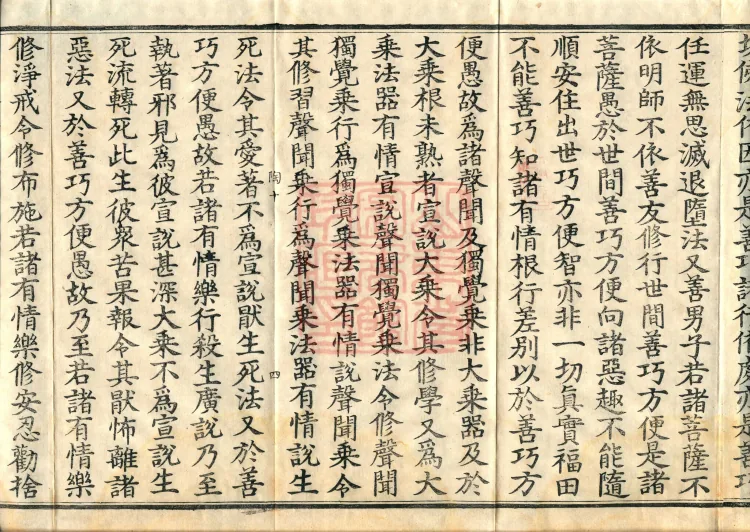 任運無思滅退墮法又善男子若諸菩薩不
依明師不依善友修行世間善巧方便是諸
菩薩愚於世間善巧方便向諸惡趣不能隨
順安住出世巧方便智亦非一切眞實福田
不能善巧知諸有情根行差別以於善巧方
便愚故爲諸聲聞及獨覺乗非大乗器及於
大乗根未熟者宣說大乗令其修學又爲大
乗法器有情宣說聲聞獨覺乗法令修聲聞
獨覺乗行爲獨覺乗法器有情說聲聞乗令
其修習聲聞乗行爲聲聞乗法器有情說生
陶十
四
死法令其愛著不爲宣說猒生死法又於善
巧方便愚故若諸有情樂行殺生廣說乃至
執著邪見爲彼宣說甚深大乗不爲宣說生
死流轉死此生彼衆苦果報令其猒怖離諸
惡法又於善巧方便愚故乃至若諸有情樂
修淨戒令修布施若諸有情樂修安忍勸捨